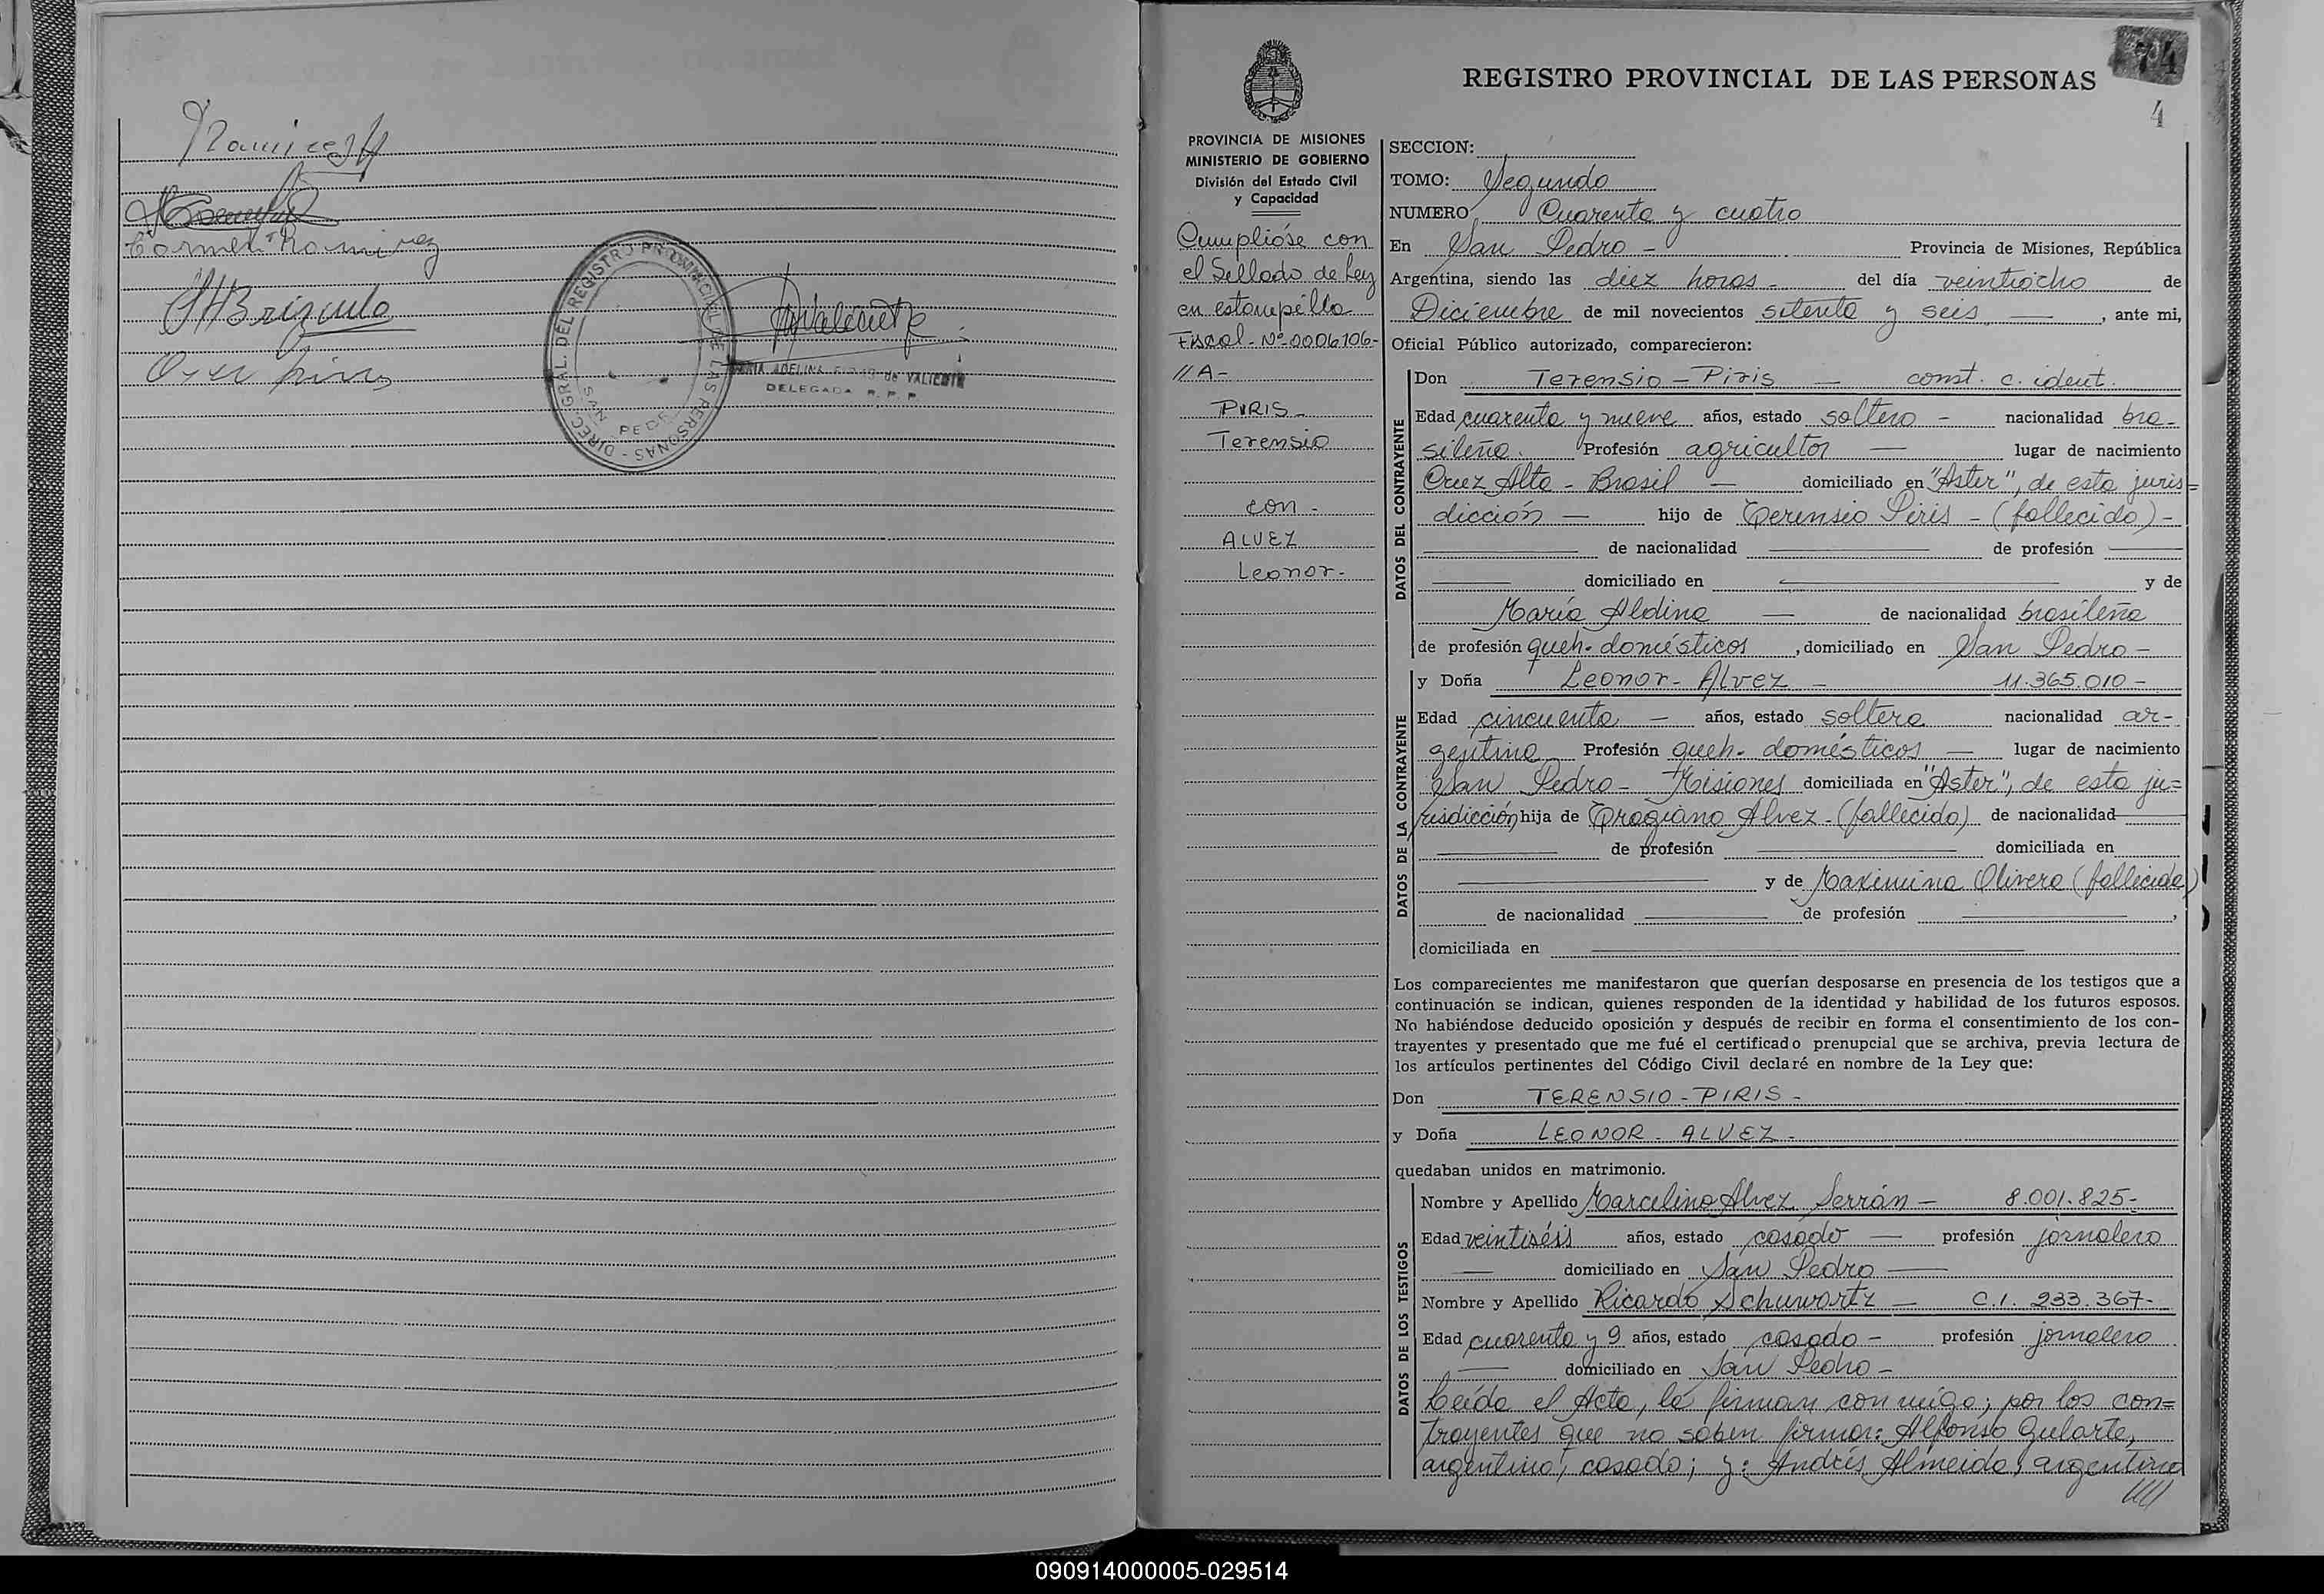 Ramirez
Carmen Ramirez
DIREC. GRAL. DEL REGISTRO PROVINCIAL DE LAS PERSONAS -
SAN PEDRO
de VALIENTE
DELEGADA R. P. P.
74
4
REGISTRO PROVINCIAL DE LAS PERSONAS
PROVINCIA DE MISIONES
MINISTERIO DE GOBIERNO
División del Estado Civil
y Capacidad
Cumplióse con
el Sellado de Ley
en estampilla
Fiscal - Nº 0006106-
//A-
PIRIS -
Terensio
con -
ALVEZ
Leonor -
SECCION:
TOMO: Segundo
NUMERO Cuarenta y cuatro
En San Pedro - Provincia de Misiones, República
Argentina, siendo las diez horas - del día veintiocho de
Diciembre de mil novecientos setenta y seis —, ante mi,
Oficial Público autorizado, comparecieron:
DATOS DEL CONTRAYENTE
Don Terensio - Piris — const. c. ident.
Edad cuarenta y nueve años, estado soltero - nacionalidad bra-
sileña. Profesión agricultor — lugar de nacimiento
Cruz Alta - Brasil — domiciliado en "Aster", de esta juris=
dicción — hijo de Terensio Piris - (fallecido) -
de nacionalidad — de profesión —
domiciliado en — y de
María Aldina — de nacionalidad brasileña
de profesión queh. domésticos, domiciliado en San Pedro -
DATOS DE LA CONTRAYENTE
y Doña Leonor - Alvez - 11.365.010 -
Edad cincuenta - años, estado soltera nacionalidad ar-
gentina Profesión queh. domésticos — lugar de nacimiento
San Pedro - Misiones domiciliada en "Aster", de esta ju=
risdicción hija de Alvez - (fallecido) de nacionalidad —
— de profesión — domiciliada en
— y de Maximina Olivera (fallecida)
de nacionalidad — de profesión —,
domiciliada en —
Los comparecientes me manifestaron que querían desposarse en presencia de los testigos que a
continuación se indican, quienes responden de la identidad y habilidad de los futuros esposos.
No habiéndose deducido oposición y después de recibir en forma el consentimiento de los con-
trayentes y presentado que me fué el certificado prenupcial que se archiva, previa lectura de
los artículos pertinentes del Código Civil declaré en nombre de la Ley que:
Don TERENSIO - PIRIS -
y Doña LEONOR - ALVEZ -
quedaban unidos en matrimonio.
DATOS DE LOS TESTIGOS
Nombre y Apellido Marcelino Alvez Serrán - 8.001.825-
Edad veintiséis años, estado casado — profesión jornalero
— domiciliado en San Pedro —
Nombre y Apellido Ricardo Schuwartz — C.I. 233.367-
Edad cuarenta y 9 años, estado casado - profesión jornalero
— domiciliado en San Pedro -
Leída el Acta, la firman conmigo; por los con=
trayentes que no saben firmar: Alfonso Gularte,
argentino, casado; y: Andrés Almeida, argentino
////
090914000005-029514